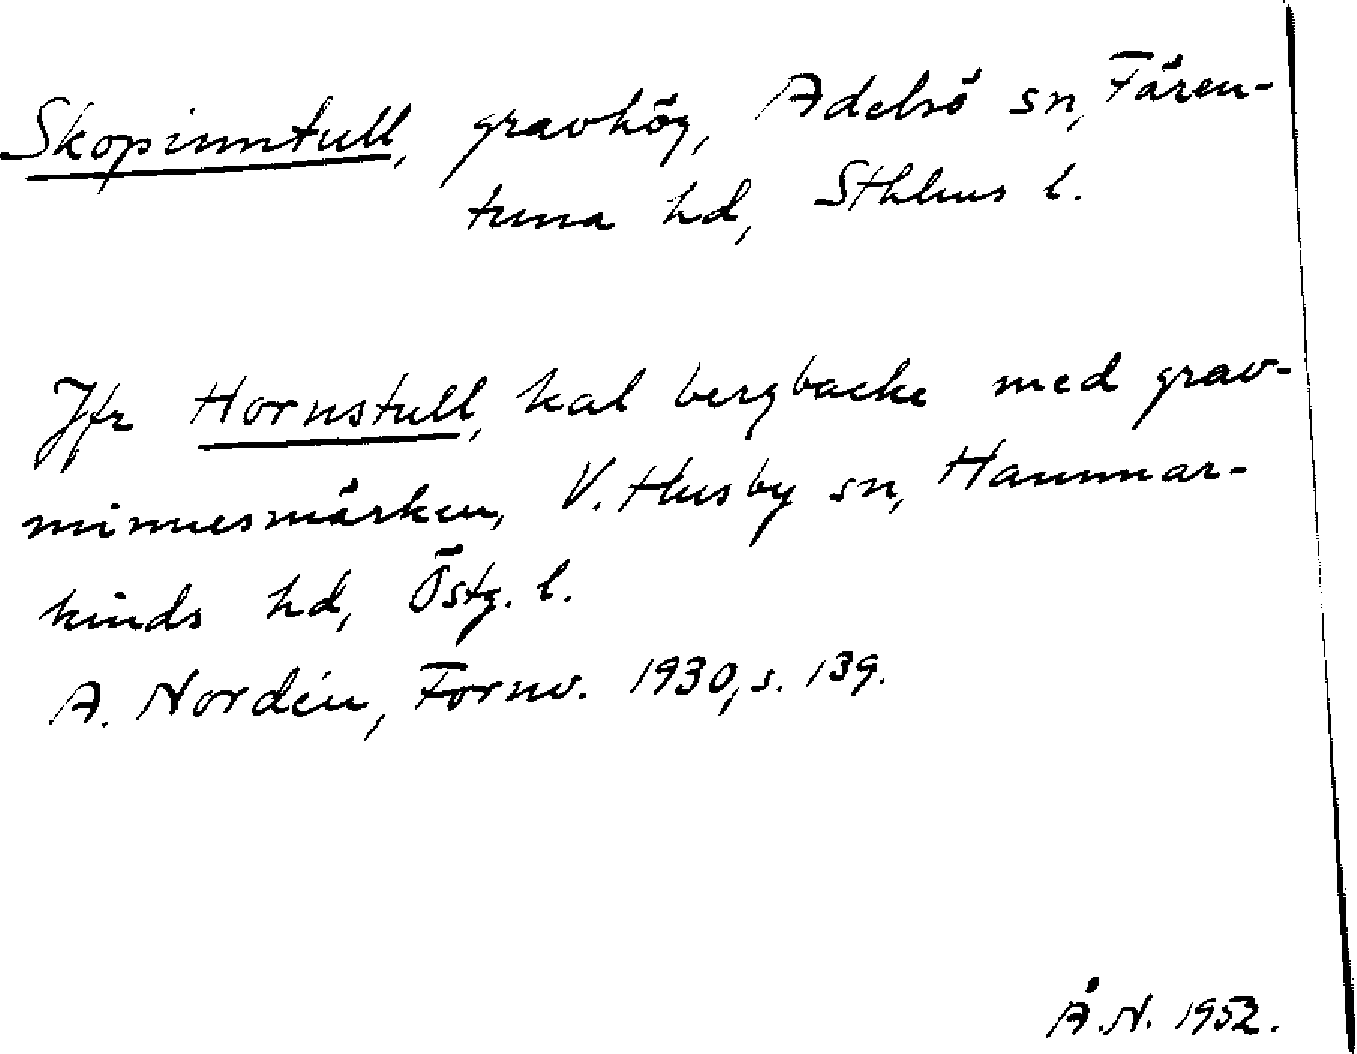 Skopinntull, gravhög, Adelsö sn, Fären-
tuna hd, Sthlms l.
Jfr Hornstull, kal bergbacke med grav-
minnesmärken, V. Husby sn, Hammar-
kinds hd, Östg. l.
A. Nordén, Fornv. 1930, s. 139.
Å.N. 1952.